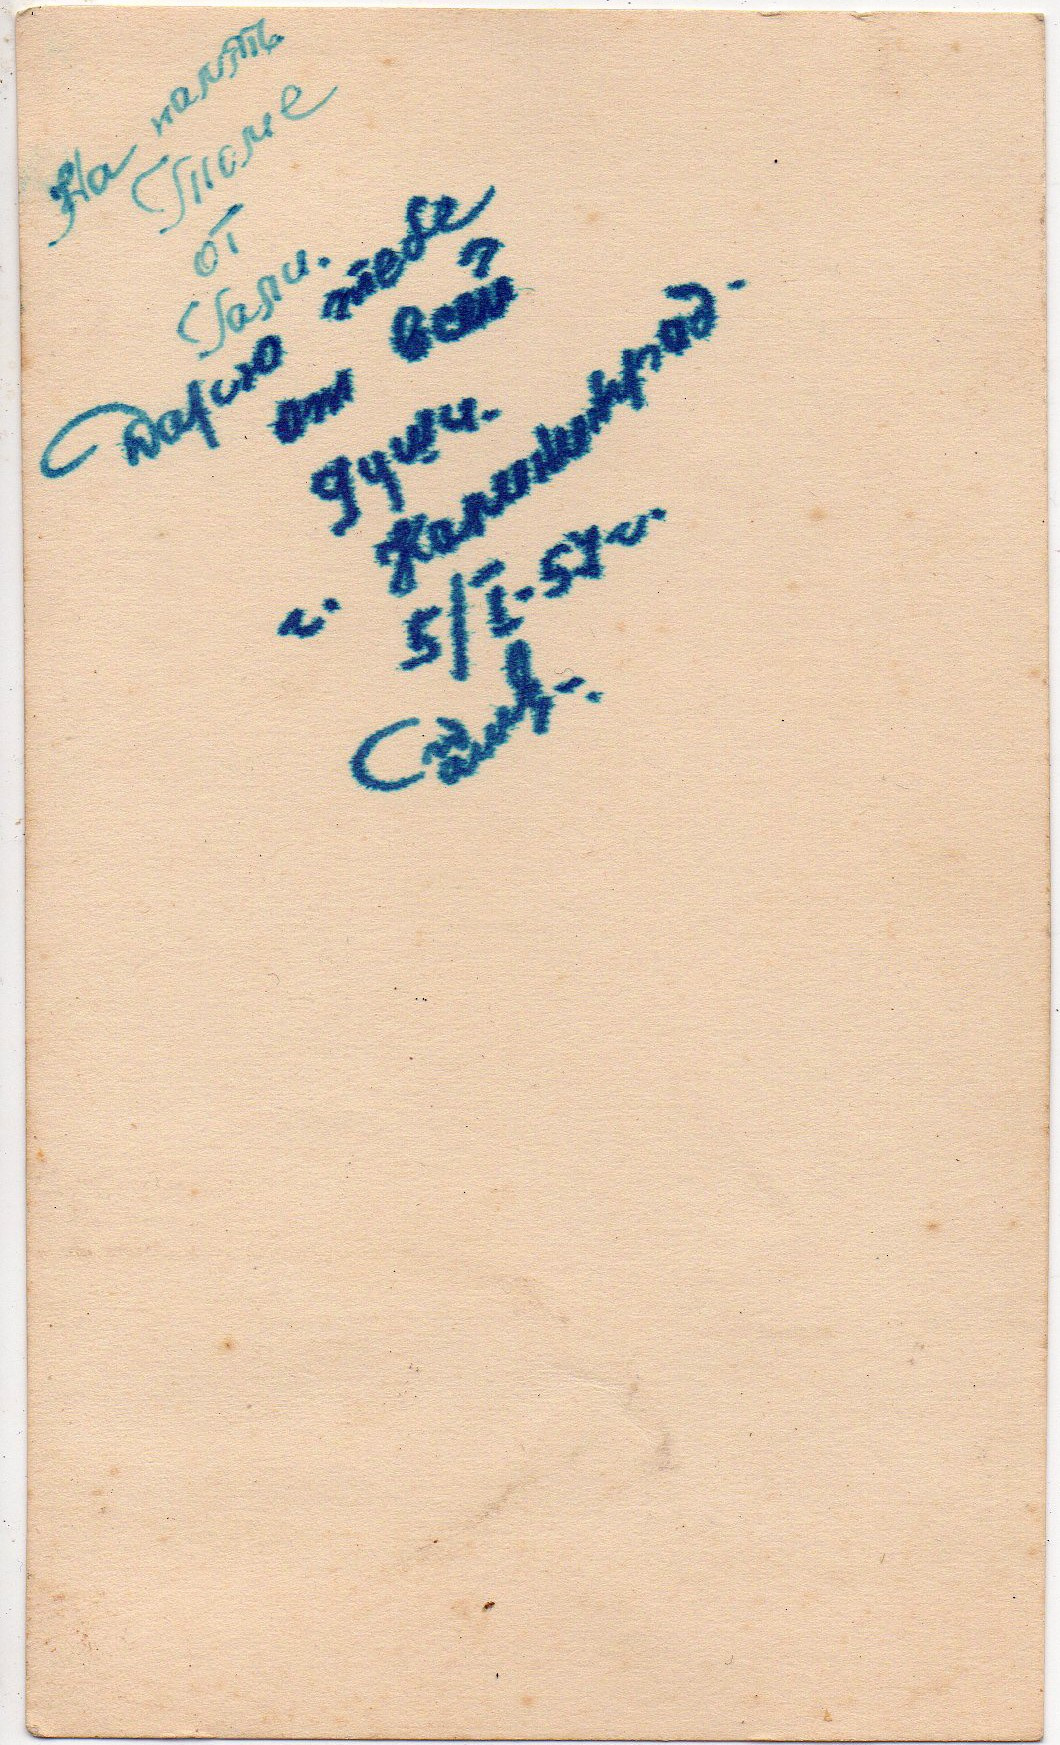 На память
Томе
от
Гали.
Дарю тебе
от всей
души.
г. Калининград.
5/I-57 г.